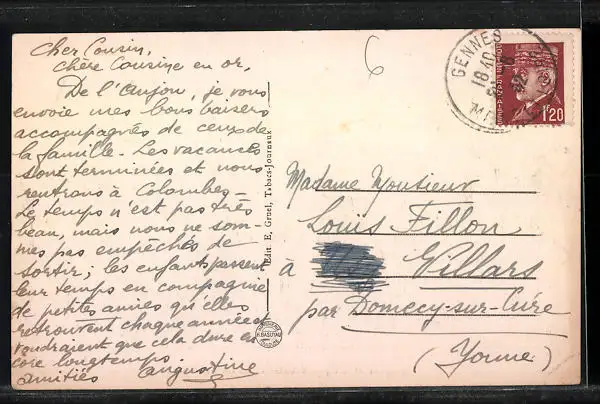 Cher Cousin,
chère Cousine en or,
De l'Anjou, je vous
envoie mes bons baisers
accompagnés de ceux de
la famille. Les vacances
sont terminées et nous
rentrons à Colombes.
Le temps n'est pas très
beau, mais nous ne som-
mes pas empêchés de
sortir; les enfants passent
leur temps en compagnie
de petites amies qu'elles
retrouvent chaque année et
voudraient que cela dure en
core longtemps.
amitiés Augustine
6
Edit. E. Gruel, Tabacs-Journaux
GENNES
18 40
1F20
Madame Monsieur
Louis Fillon
à Villars
par Domecy-sur-Cure
(Yonne)